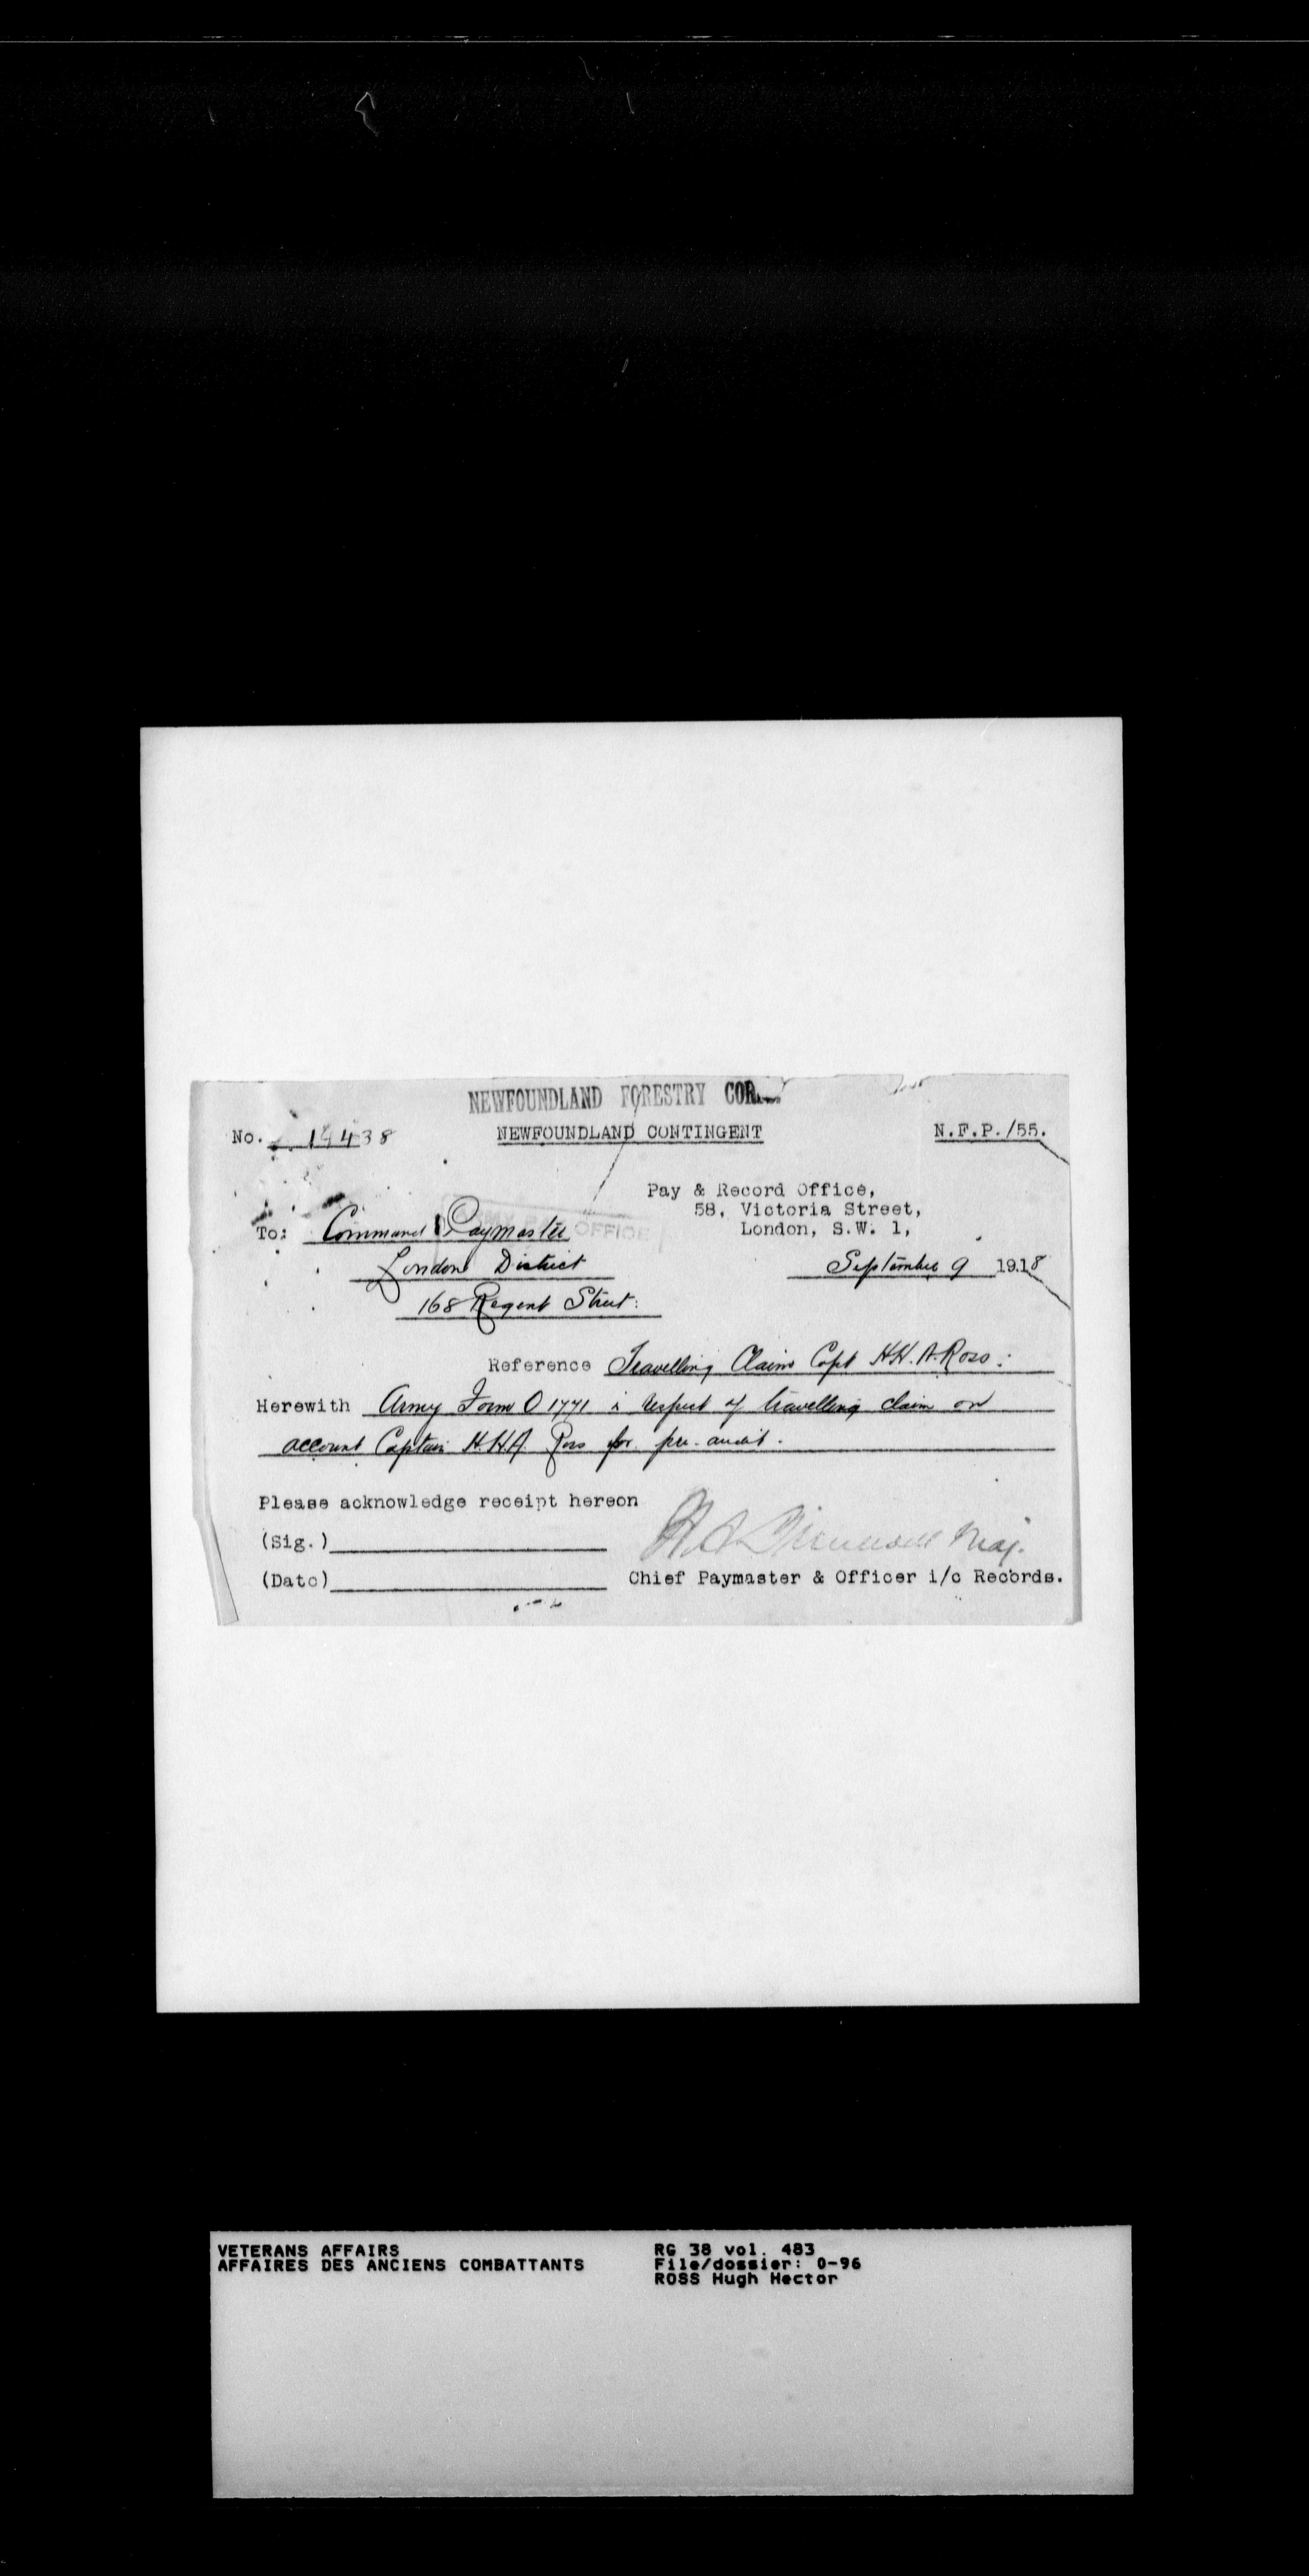 NEWFOUNDLAND FORESTRY
No. 19438 NEWFOUNDLAND CONTINGENT N.F.P./55.
Pay & Record Office,
58, Victoria Street,
London, S.W. 1,
To: Command Paymaster OFFICE
London District
September 9 1918
168 Regent Street:
Reference Travelling Claim Capt H.H.A. Ross:
Herewith Army Form O 1771 in respect of travelling claim on
account Captain H.H.A. Ross for pre-audit.
Please acknowledge receipt hereon
(Sig.) Maj.
(Date) Chief Paymaster & Officer i/c Records.
VETERANS AFFAIRS RG 38 vol. 483
AFFAIRES DES ANCIENS COMBATTANTS File/dossier: 0-96
ROSS Hugh Hector